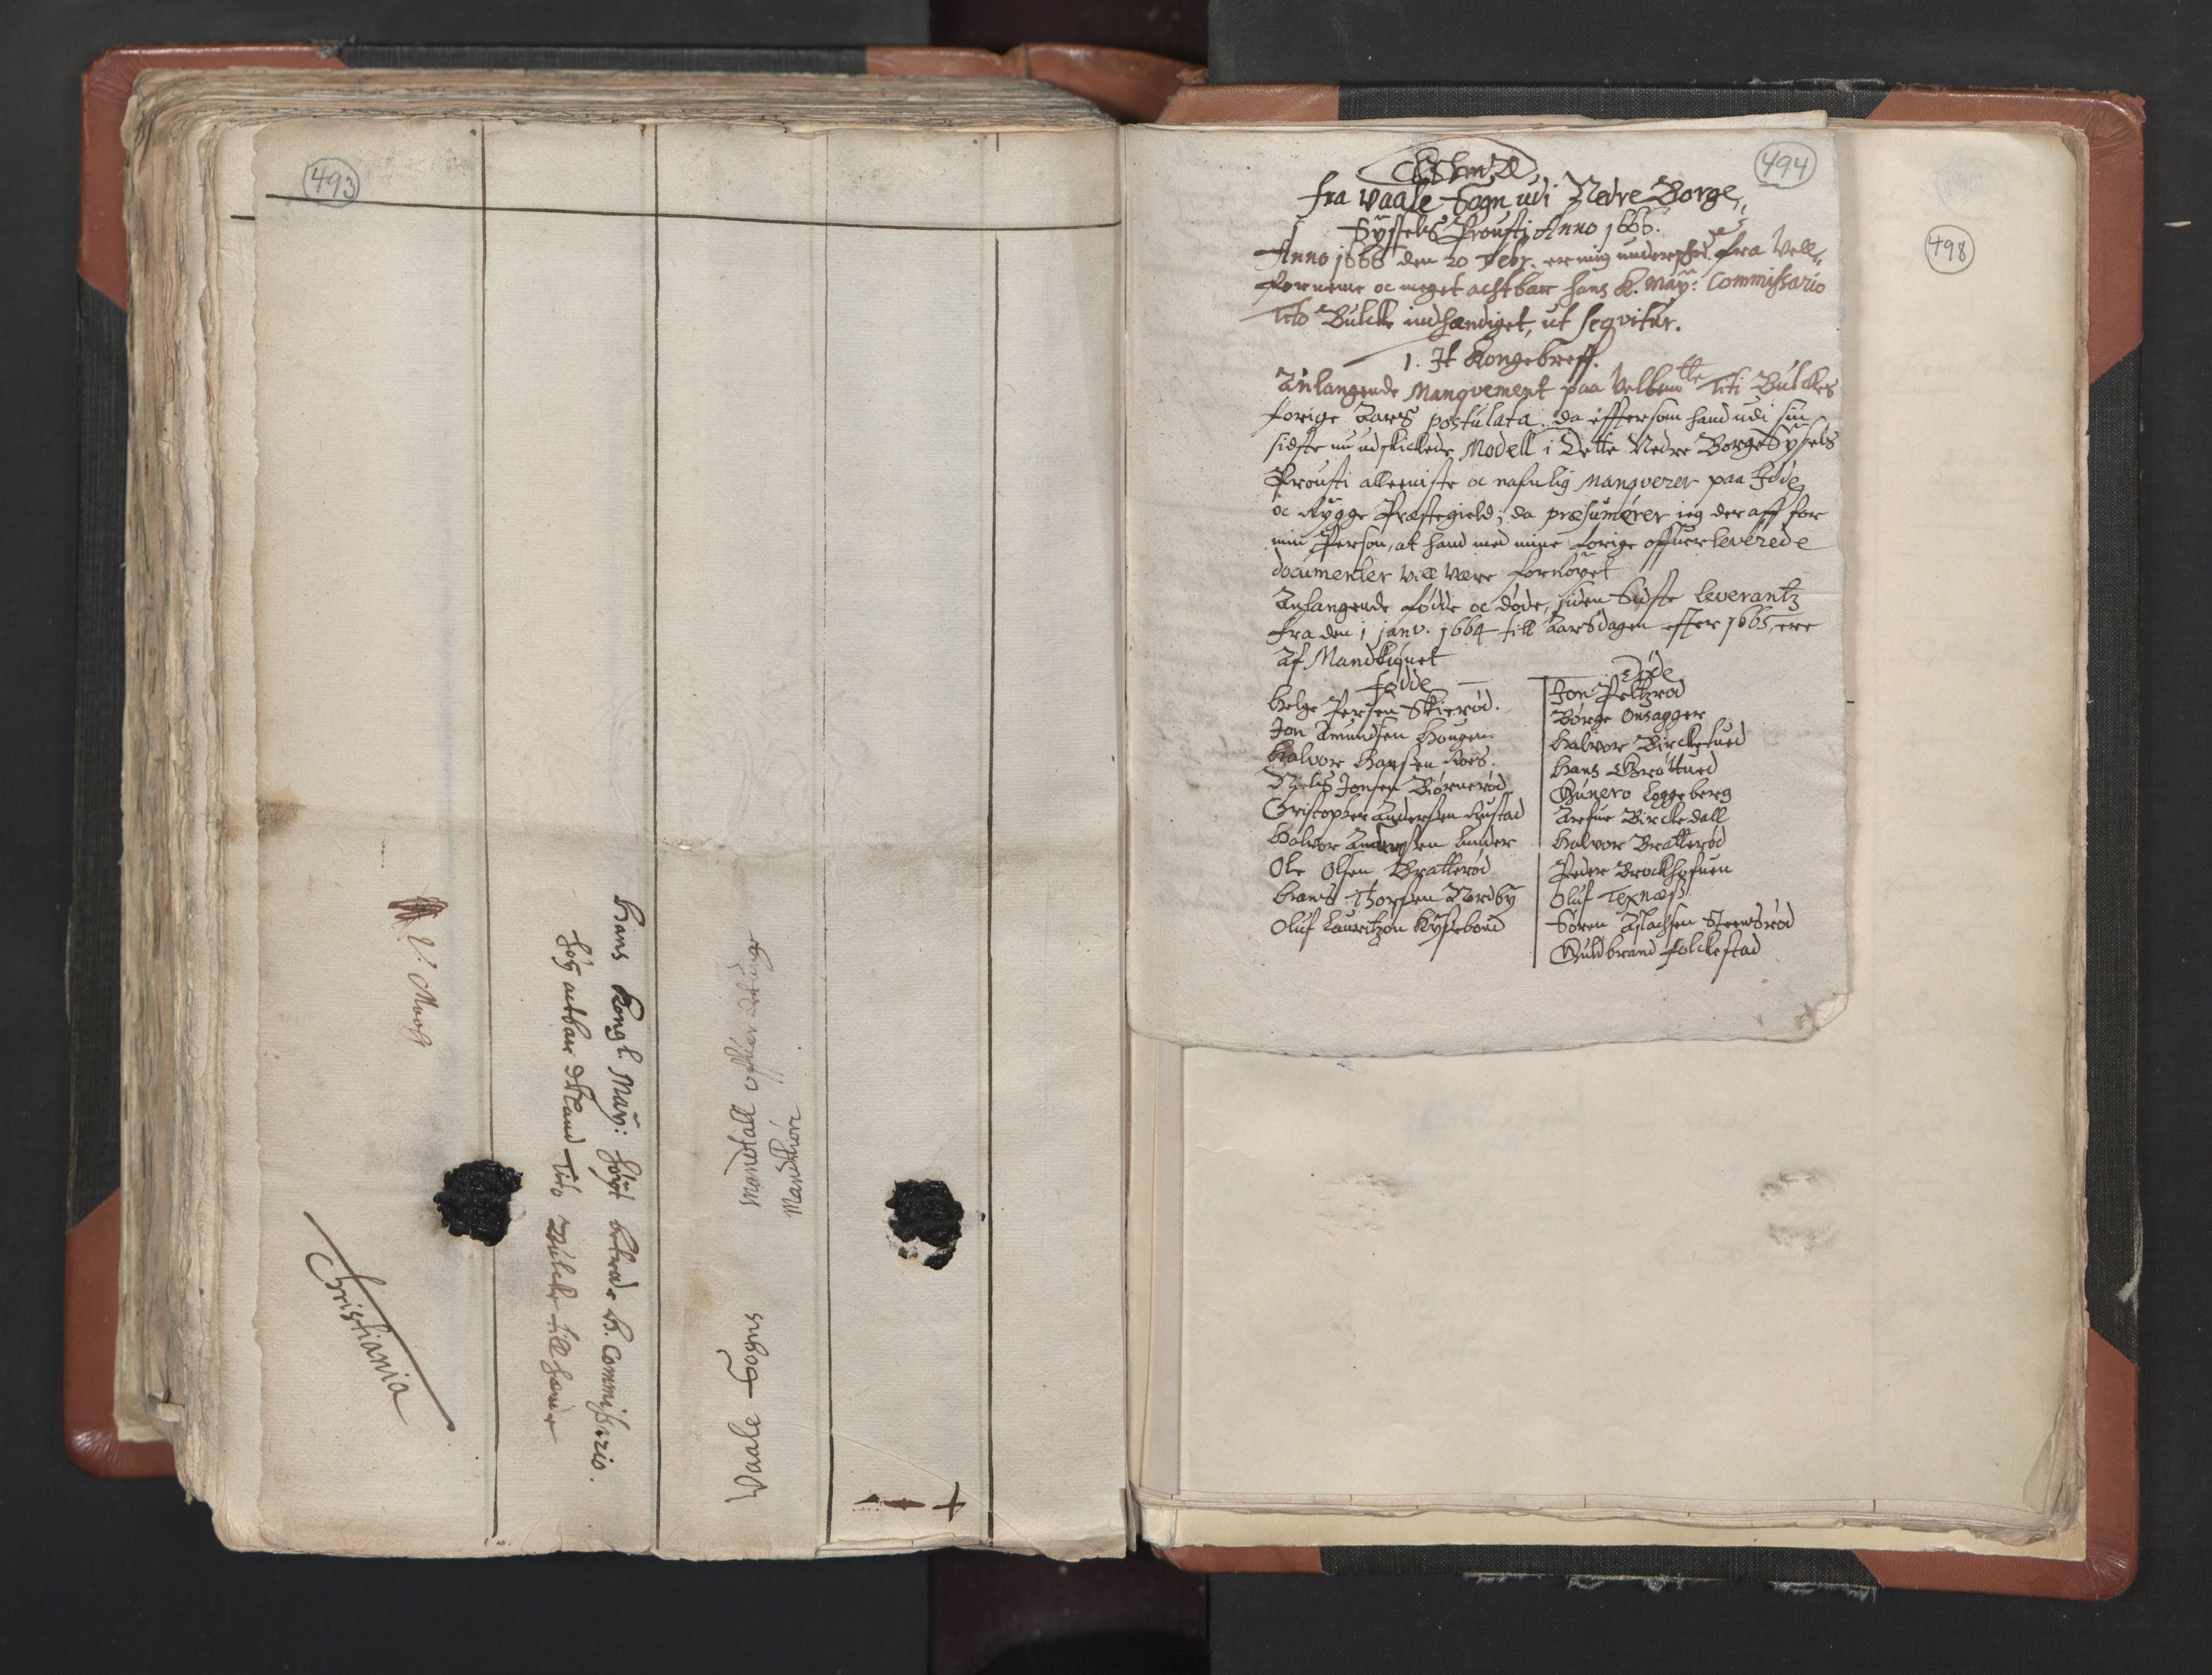 493
V: Moos
Christiania
Hans Kongl. May: høyt betrode H. Commissario.
høy acthar Mand Tito Bülche till hænde
Mandtall offuer
Mandkiøn
Waale Sogns
494
498
fra Vaale Sogn udi Nedre Borge,,
Syssels Prousti Anno 1666.
Anno 1666 den 20 Febr. er mig undersch. fra Vell,,
forneme oc meget achtbar hans K. May: Commissario
Tito Bulcke indhændiget, ut seqvitur.
1. It Kongebreff.
Anlangende Manqvement paa Velbemtte Titi Bulckes
forige Aars postulata. da effter som hand udi sin
sidste nu udskickede Modell i Dette Nedre Borge Syssels
Prousti alleeniste oc nafnlig manqverer paa Idde
oc Rygge Præstegield; da præsumerer ieg der aff for
min Person, at hand med mine forige offuerleverede
documenter vill være fornøyet
Anlangende fødde oc døde, siden Sidste leverantz
fra den 1 janv. 1664 till Aarsdagen effter 1665, ere
Af Mandkiønet
fødde
Helge Persen Skierød.
Jon Amundsen Hougen.
Halvor Hansen Roes.
Niels Jonsen Biørnerød
Christopher Andersen Rustad
Halvor Andersen Lunder
Ole Olsen Bratterød
Hans Thorsen Nordby
Oluf Lauritzøn Kyssebond
Døde
Jon Peltzrød
Børge Onsagger
Halvor Birckethued
Hans Grøttued
Gunero Loggeberg
Arefue Birckedall
Halvor Bratterød
Peder Brockhofuen
Oluf Texnæs
Søren Aslachsen Steensrød
Guldbrand Folckestad